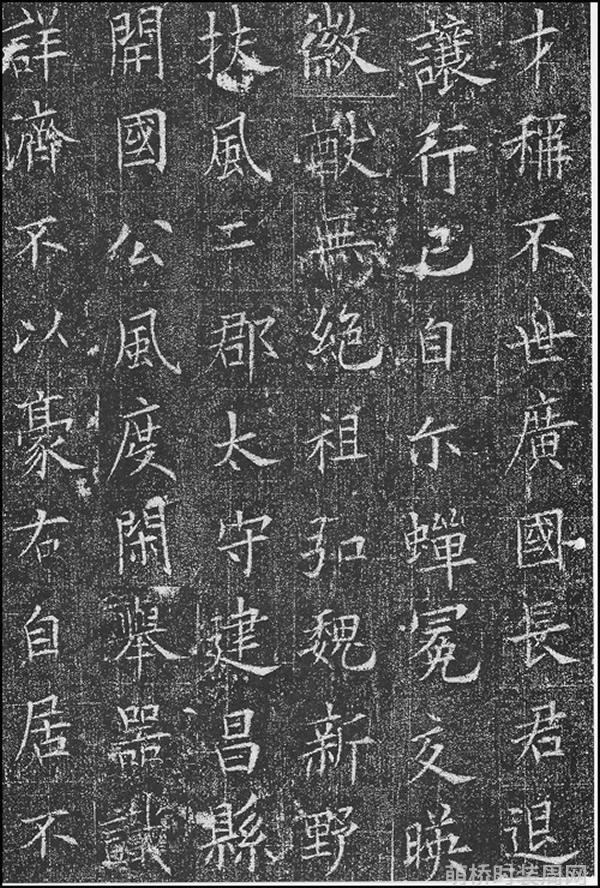 才稱不世廣國長君退
讓行己自尒蟬冕交暎
徽猷無絶祖弘魏新野
扶風二郡太守建昌縣
開國公風度閑舉器識
詳濟不以豪右自居不
萌桥时装周网